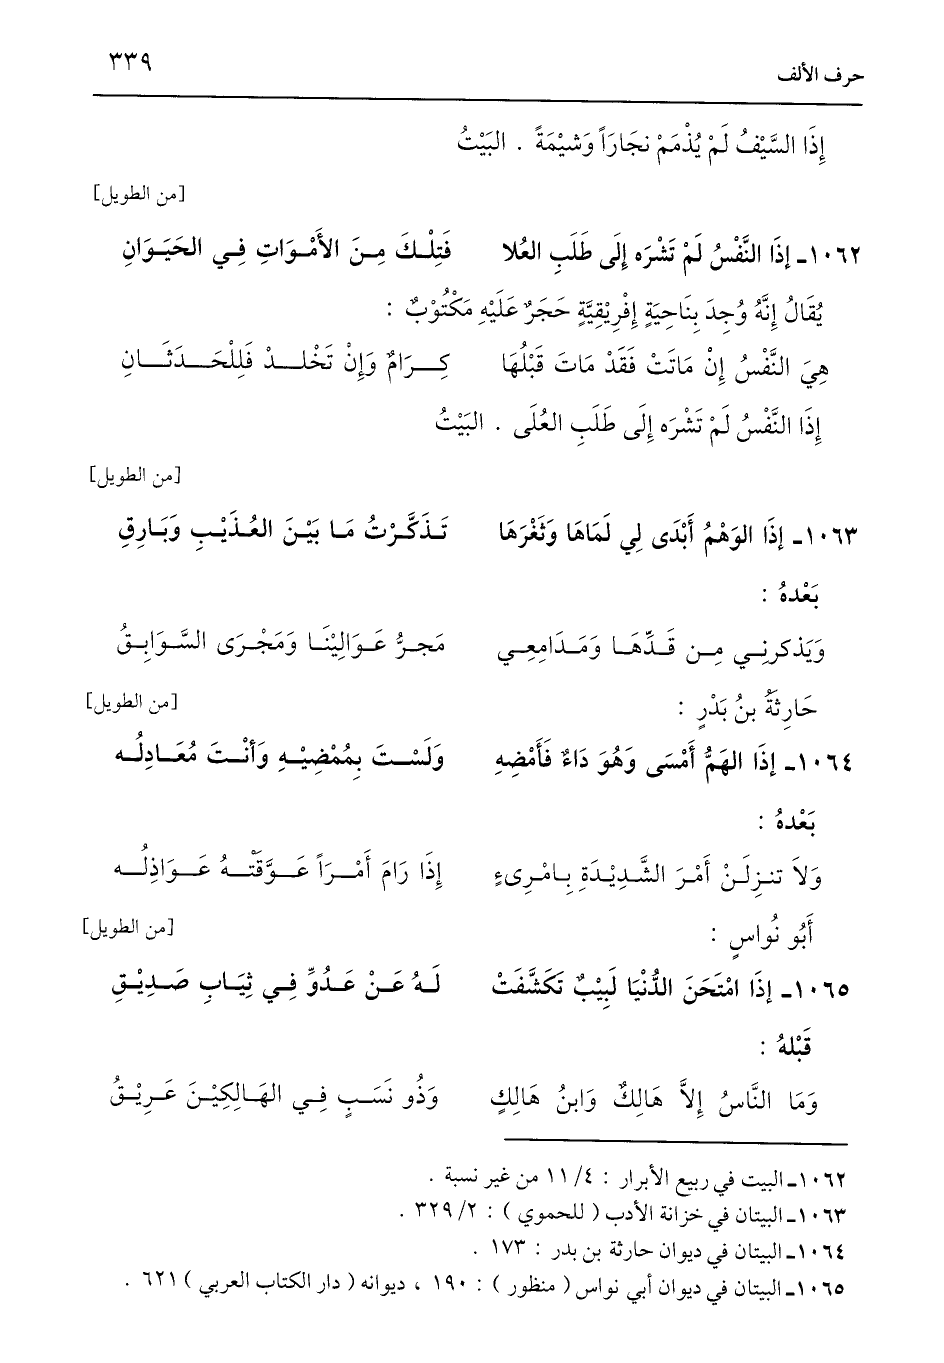 حرف الألف ٣٣٩
إِذَا السَّيْفُ لَمْ يُذْمَمْ نجَارَاً وَشيْمَةً . البَيْتُ
[من الطويل]
١٠٦٢ـ إذَا النَّفْسُ لَمْ تَشْرَه إلَى طَلَبِ العُلا فَتِلْكَ مِنَ الأَمْوَاتِ فِي الحَيَوَانِ
يُقَالُ إِنَّهُ وُجِدَ بِنَاحِيَةٍ إِفْرِيْقِيَّةٍ حَجَرٌ عَلَيْهِ مَكْتُوْبٌ :
هِيَ النَّفْسُ إِنْ مَاتَتْ فَقَدْ مَاتَ قَبْلُهَا كِرَامٌ وَإِنْ تَخْلدْ فَلِلْحَدثَانِ
إِذَا النَّفْسُ لَمْ تَشْرَه إِلَى طَلَبِ العُلَى . البَيْتُ
[من الطويل]
١٠٦٣ـ إذَا الوَهْمُ أَبْدَى لِي لَمَاهَا وَثَغْرَهَا تَذَكَّرْتُ مَا بَيْنَ العُذَيْبِ وَبَارِقِ
بَعْدهُ :
وَيَذكرنِي مِن قَدِّهَا وَمَدَامِعِي مَجرُّ عَوَالِيْنَا وَمَجْرَى السَّوَابِقُ
حَارِثَةُ بنُ بَدْرٍ : [من الطويل]
١٠٦٤ـ إذَا الهَمُّ أَمْسَى وَهُوَ دَاءٌ فَأَمْضِهِ وَلَسْتَ بِمُمْضِيْهِ وَأَنْتَ مُعَادِلُه
بَعْدهُ :
وَلاَ تنزِلَنْ أَمْرَ الشَّدِيْدَةِ بِامْرِىءٍ إِذَا رَامَ أَمْرَاً عَوَّقَتْهُ عَوَاذِلُه
أَبُو نُواسٍ : [من الطويل]
١٠٦٥ـ إذَا امْتَحَنَ الدُّنْيَا لَبِيْبٌ تَكَشَّفَتْ لَهُ عَنْ عَدُوٍّ فِي ثِيَابِ صَدِيْقِ
قَبْلهُ :
وَمَا النَّاسُ إِلاَّ هَالِكٌ وَابنُ هَالِكٍ وَذُو نَسَبٍ فِي الهَالِكِيْنَ عَرِيْقُ
١٠٦٢ـ البيت في ربيع الأبرار : ٤/ ١١ من غير نسبة .
١٠٦٣ـ البيتان في خزانة الأدب ( للحموي ) : ٢/ ٣٢٩ .
١٠٦٤ـ البيتان في ديوان حارثة بن بدر : ١٧٣ .
١٠٦٥ـ البيتان في ديوان أبي نواس ( منظور ) : ١٩٠ ، ديوانه ( دار الكتاب العربي ) ٦٢١ .